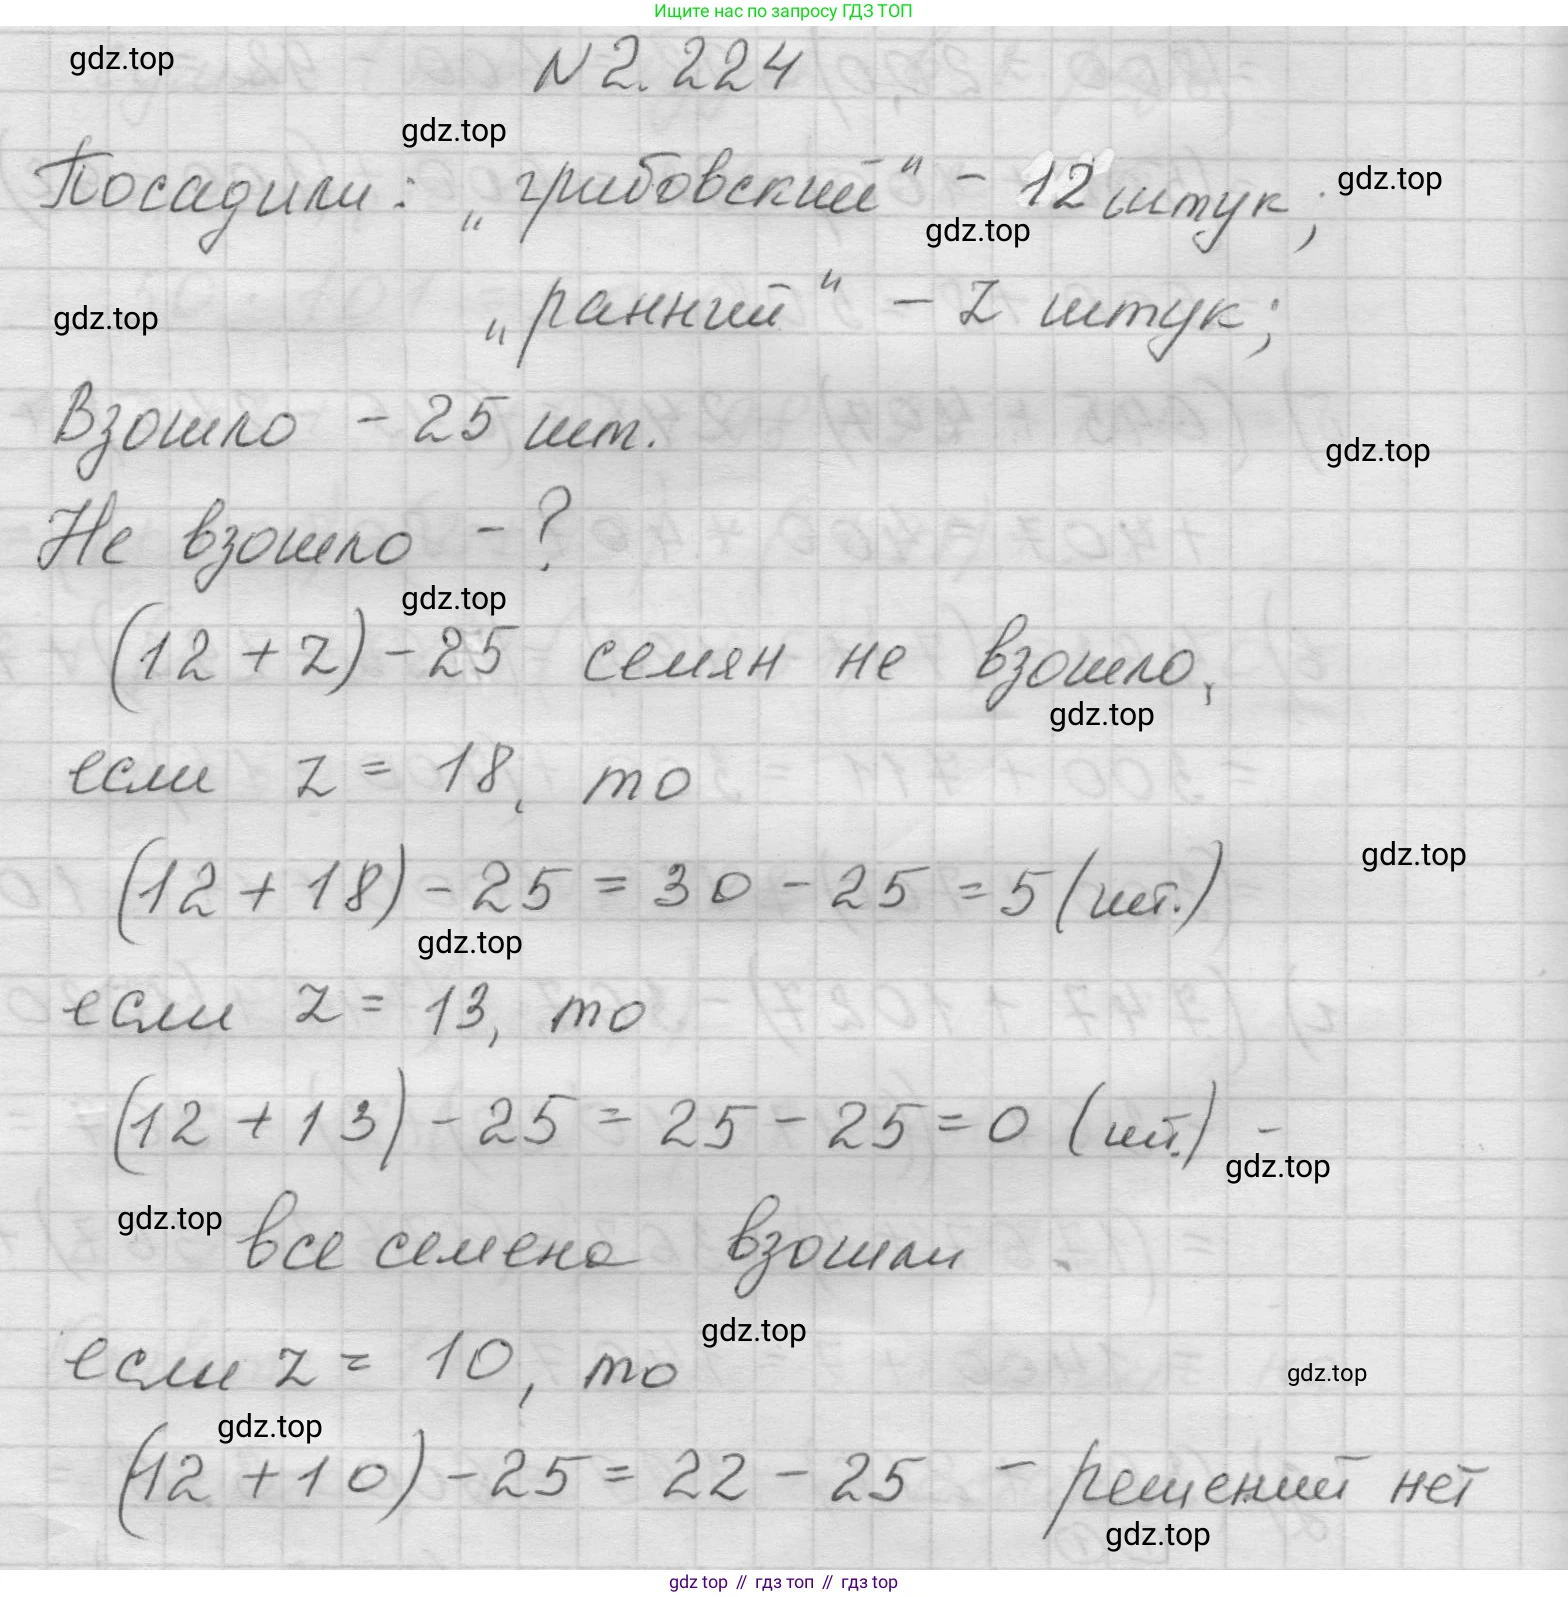 Ищите нас по запросу ГДЗ ТОП
gdz.top
N 2. 224
gdz.top
Посадили: „грибовский“ - 12 штук;
gdz.top
gdz.top
„ранний“ - z штук;
gdz.top
Взошло - 25 шт.
gdz.top
Не взошло - ?
gdz.top
(12 + z) - 25 семян не взошло,
gdz.top
если z = 18, то
gdz.top
(12 + 18) - 25 = 30 - 25 = 5 (шт.)
gdz.top
если z = 13, то
(12 + 13) - 25 = 25 - 25 = 0 (шт.) -
gdz.top
gdz.top
все семена взошли.
gdz.top
если z = 10, то
gdz.top
gdz.top
(12 + 10) - 25 = 22 - 25 - решений нет
gdz.top
gdz top // гдз топ // гдз top